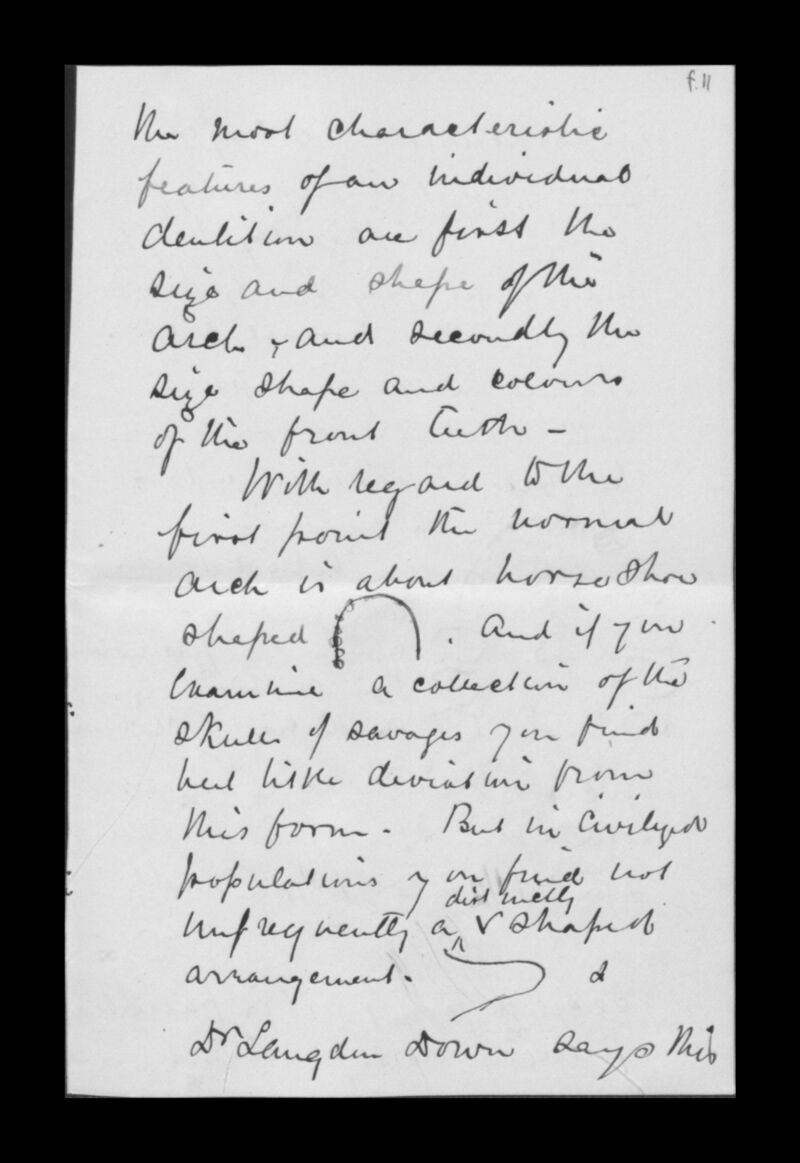 f.11
the most characteristic
features of an individual
dentition are first the
size and shape of the
arch, and secondly the
size shape and colours
of the front teeth -
With regard to the
first point the normal
arch is about horse shoe
shaped . And if you
examine a collection of the
skulls of savages you find
but little deviation from
this form. But in civilized
populations you find not
distinctly
unfrequently a V shaped
arrangement. &
Dr Langdon Down says this